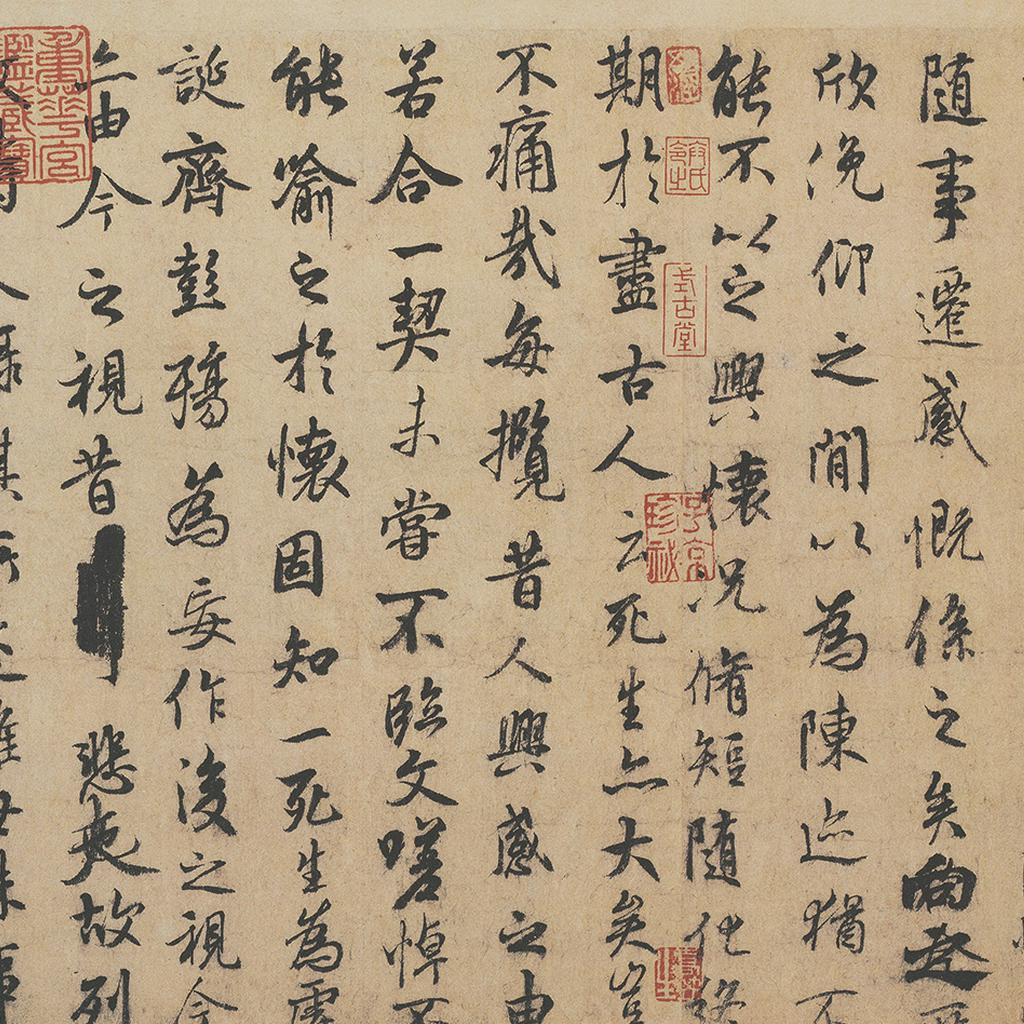 隨事遷感慨係之矣向之
欣俛仰之間以為陳迹猶不
能不以之興懷況脩短隨化終
期於盡古人云死生亦大矣豈
不痛哉每攬昔人興感之由
若合一契未嘗不臨文嗟悼不
能喻之於懷固知一死生為虛
誕齊彭殤為妄作後之視今
亦由今之視昔悲夫故列
人錄其所述雖世殊事
式古堂
重華宮鑑藏寶